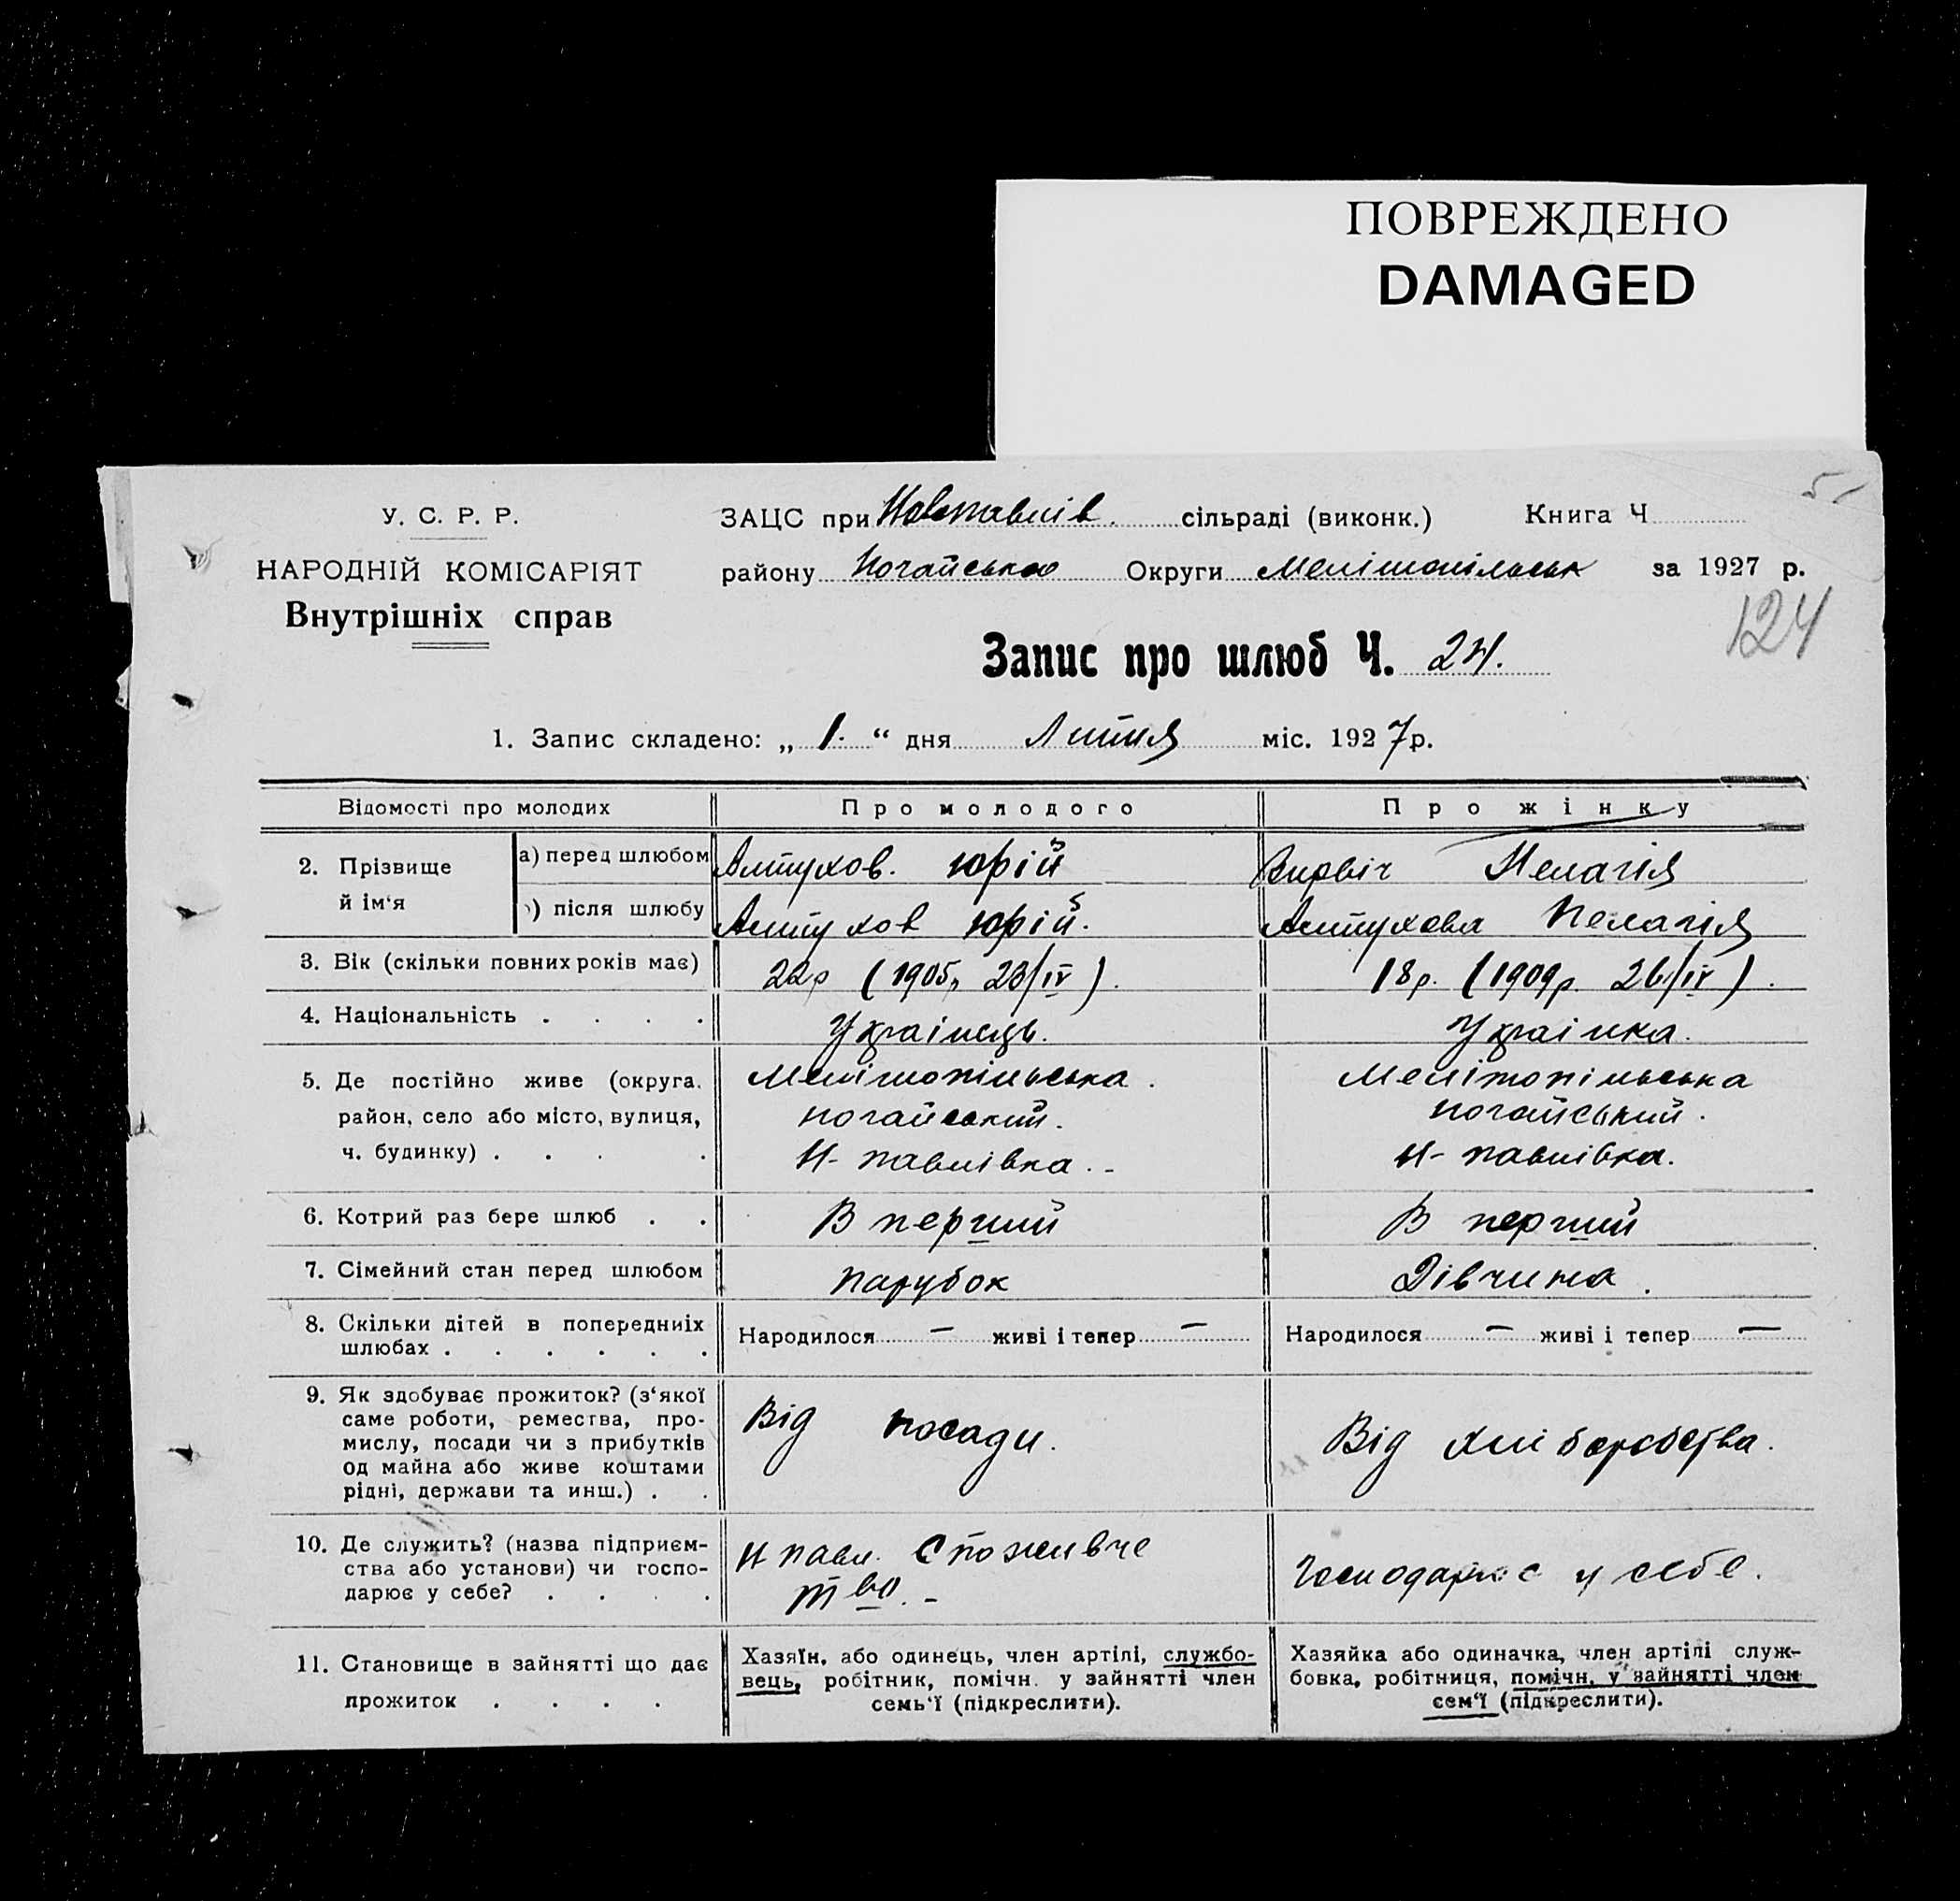 ПОВРЕЖДЕНО
DAMAGED
5-
У. С. Р. Р.
НАРОДНІЙ КОМІСАРІЯТ
Внутрішніх справ
ЗАЦС при Новопавлів. сільраді (виконк.) Книга Ч
району Ногайського Округи Мелітопільськ за 1927 р.
124
Запис про шлюб Ч. 24.
1. Запис складено: „ 1. “ дня Липня міс. 1927 р.
Відомості про молодих Про молодого Про жінку
2. Прізвище й ім‘я
а) перед шлюбом Алтухов. Юрій Вирвіч Пелагія
) після шлюбу Алтухов Юрій. Алтухова Пелагія
3. Вік (скільки повних років має) 22р (1905р 23/IV). 18р. (1909р. 26/IV).
4. Національність . . . . Українець. Українка.
5. Де постійно живе (округа,
район, село або місто, вулиця,
ч. будинку) . . . .
Мелітопільська.
Ногайський.
Н-павлівка. -
Мелітопільська
Ногайський.
Н-павлівка.
6. Котрий раз бере шлюб . . В перший В перший
7. Сімейний стан перед шлюбом Парубок Дівчина.
8. Скільки дітей в попередниіх
шлюбах . . . . . .
Народилося — живі і тепер —
Народилося — живі і тепер —
9. Як здобуває прожиток? (з‘якої
саме роботи, ремества, про-
мислу, посади чи з прибутків
од майна або живе коштами
рідні, держави та инш.) . .
Від посади.
Від хліборобства.
10. Де служить? (назва підприєм-
ства або установи) чи госпо-
дарює у себе? . . . .
Н павл. Споживче
т во. -
Господарює у себе.
11. Становище в зайнятті що дає
прожиток . . . .
Хазяїн, або одинець, член артілі, службо-
вець, робітник, помічн. у зайнятті член
семь‘ї (підкреслити).
Хазяйка або одиначка, член артілі служ-
бовка, робітниця, помічн. у зайнятті член
сем‘ї (підкреслити).